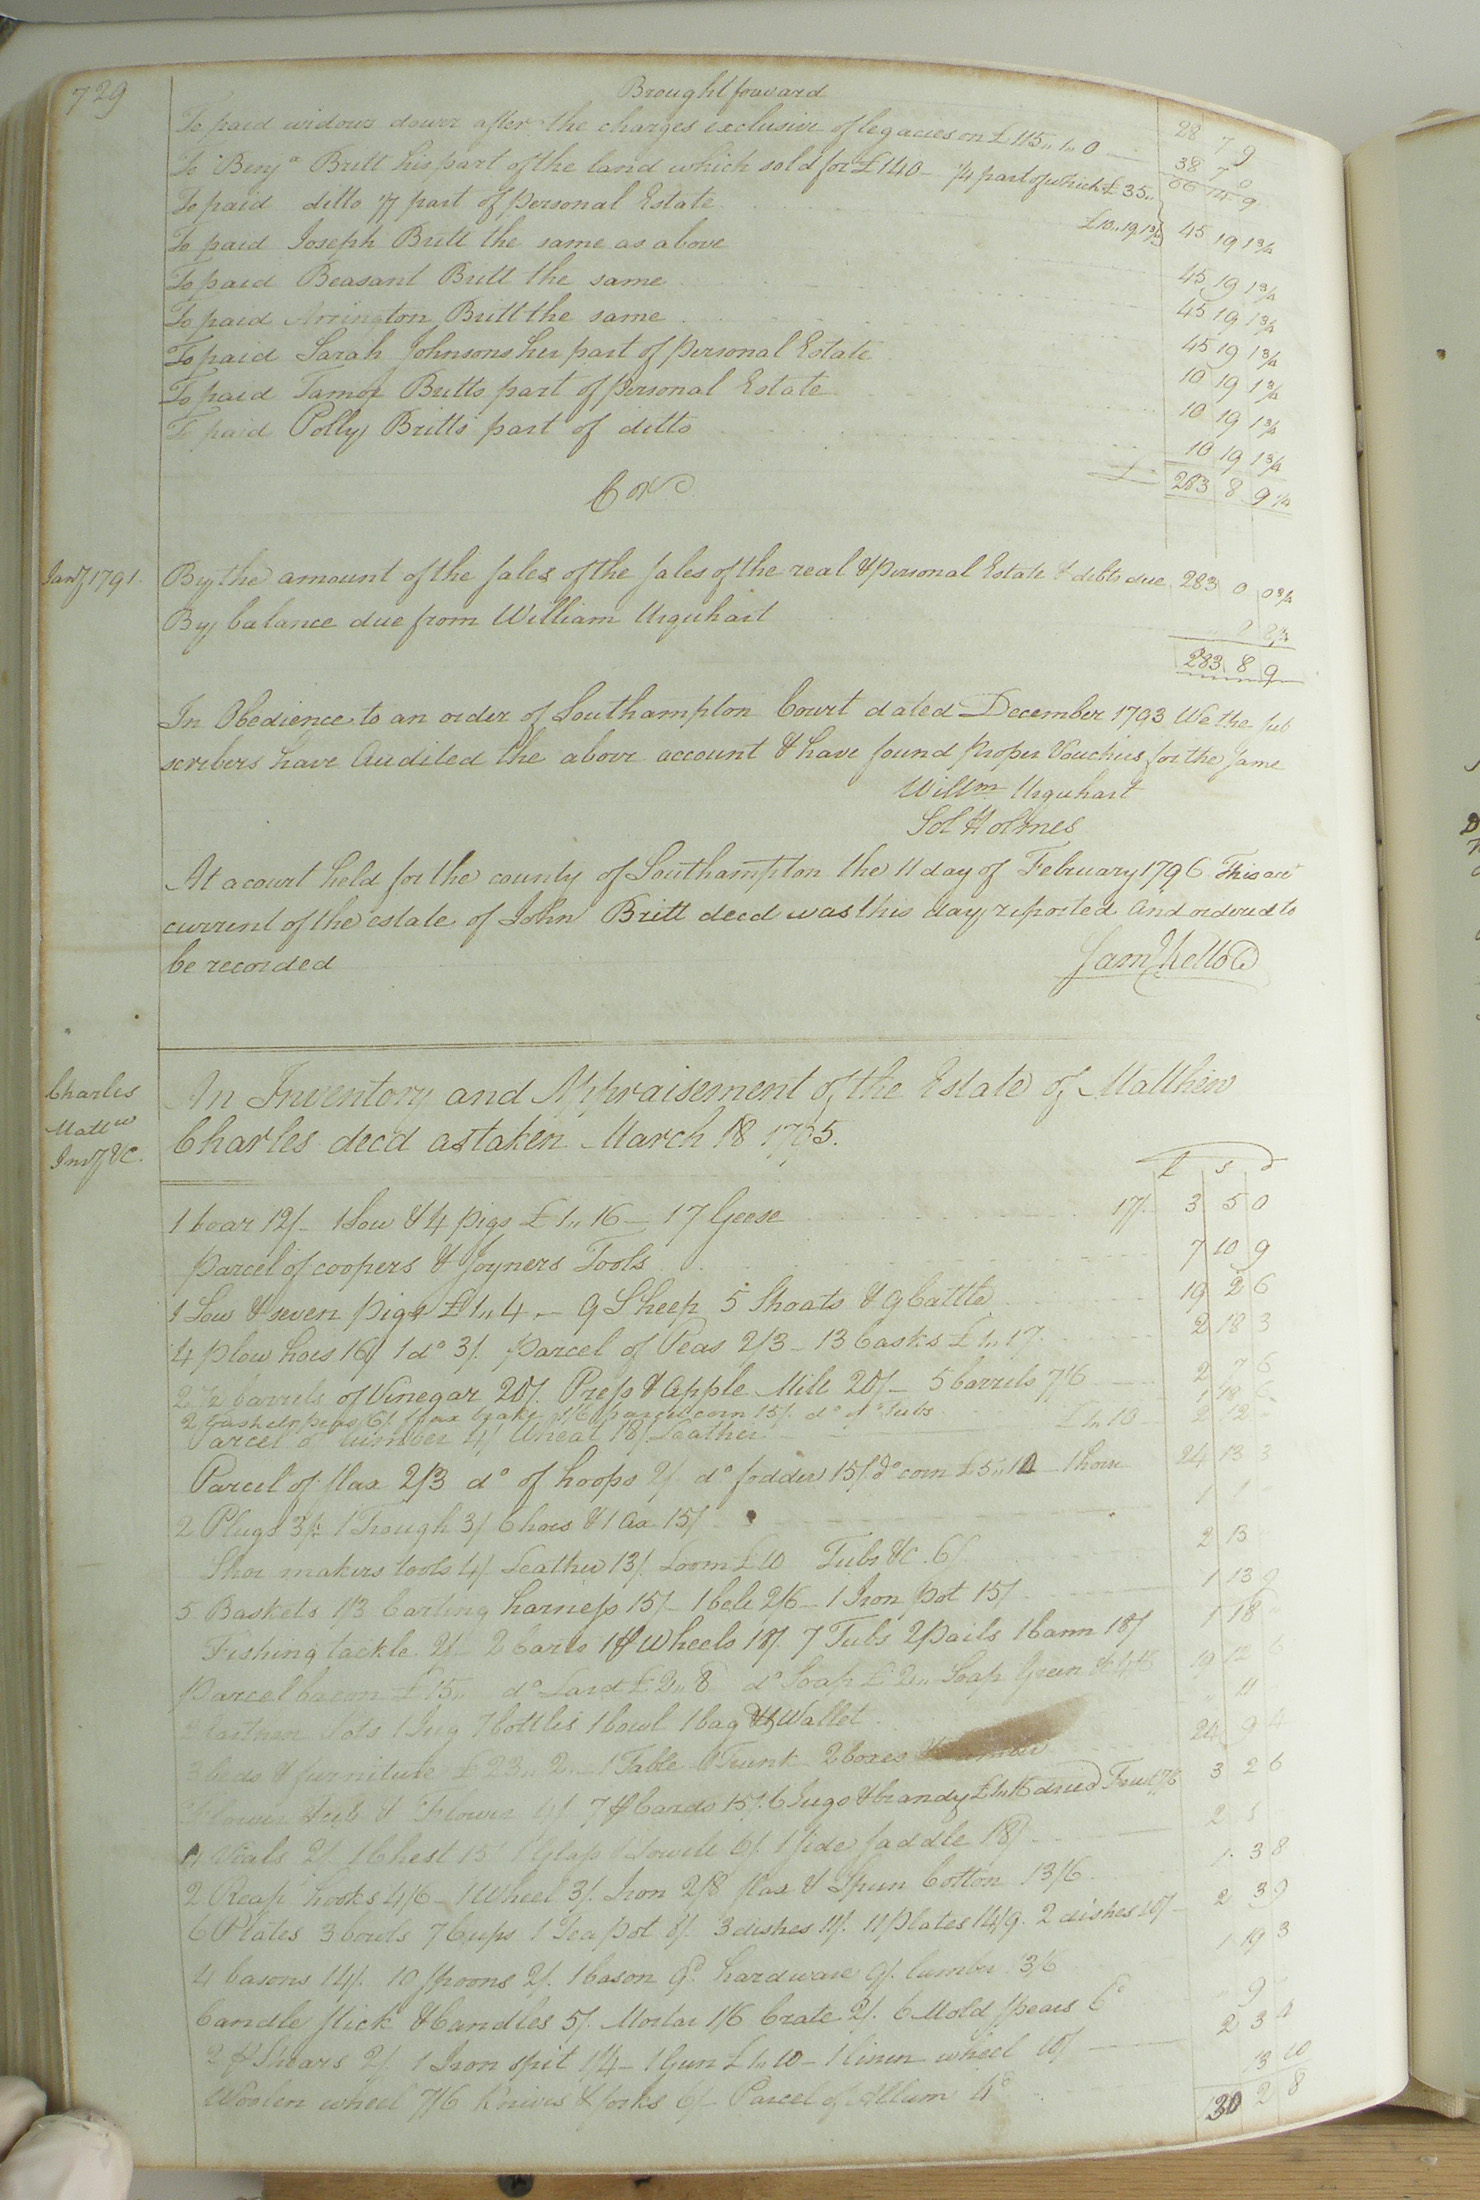 729
Brought forward 28 7 9
To paid widows dower after the charges exclusive of legacies on £115,, 1,, 0 38 7 0
66 14 9
To Benja Britt his part of the land which sold for £140 - 1/4 part of which £35,,
To paid ditto 1/7 part of personal Estate £10,,19,,1 3/4 45 19 1 3/4
To paid Joseph Britt the same as above 45 19 1 3/4
To paid Beasant Britt the same 45 19 1 3/4
To paid Arrington Britt the same 45 19 1 3/4
To paid Sarah Johnsons her part of personal Estate 10 19 1 3/4
To paid Britts part of personal Estate 10 19 1 3/4
To paid Polly Britts part of ditto 10 19 1 3/4
£ 283 8 9 1/4
Cr
Jany 1791. By the amount of the sales of the sales of the real & personal Estate & debts due 283 0 0 3/4
By balance due from William Urquhart 8 8 1/4
283 8 9
In Obedience to an order of Southampton Court dated December 1793 We the Sub
scribers have Audited the above account & have found proper Vouchers for the same
Willm Urquhart
Sol Holmes
At a court held for the county of Southampton the 11 day of February 1796 This acct
current of the estate of John Britt decd was this day reported And ordered to
be recorded
Saml Kello C
Charles
Mattw
Invy &C.
An Inventory and Appraisement of the Estate of Matthew
Charles decd as taken March 18 1795.
£ s d
1 boar 12/- 1 Sow & 4 pigs £1,, 16 - 17 Geese 17/- 3 5 0
Parcel of coopers & Joyners Tools 7 10 9
1 Sow & seven pigs £1,, 4,- 9 Sheep 5 Shoats & 9 Cattle 19 2 6
4 plow hoes 16/ 1 do 3/. parcel of Peas 2/3 - 13 Casks £1,, 17. 2 18 3
2 1/2 barrels of Vinegar 20/. Press & Apple Mill 20/- 5 barrels 7/6 2 7 6
2 peas 6/. flax brake 1/6 parcel corn 15/. do of Tubs 1 18
Parcel of lumber 4/ Wheat 18/ Leather £1,, 10 2 12
Parcel of flax 2/3 do of hoops 2/ do fodder 15/ do corn £5,, 1 horse 24 13 3
2 Plugs 1 Trough 3/ 6 hoes & 1 Ax 15/ 1 1
Shoe makers tools 4/ Leather 13/. Loom £10 Tubs &c. 6/ 2 13
5 Baskets 1/3 Carting harness 15/- 1 bell 2/6 - 1 Iron pot 15/ 1 13 9
Fishing tackle 2/- 2 Cards Wheels 18/. 7 Tubs 2 pails 1 Cann 18/ 1 18
Parcel bacon £15,, do Lard £2,, 8 do Soap £2,, Soap Green 19 12 6
Earthen Pots 1 Jug 7 bottles 1 bowl 1 bag & Wallet 11
3 beds & furniture £23,, 2,, - 1 Table 1 Trunk 2 boxes 24 9 4
Flower Tub & Flower 4/. 7 pr Cards 15/. 6 Jugs & brandy £1,,15 dried Fruit 7/6 3 2 6
Vials 2/. 1 Chest 15/ 1 Glass & Towell 6/. 1 side saddle 18/ 2 5
2 Reap hooks 4/6 - 1 Wheel 3/. Iron 2/8 flax & Spun Cotton 13/6. 1 3 8
6 Plates 3 bowls 7 Cups 1 Tea pot 8/. 3 dishes 11/. 11 plates 14/9. 2 dishes 10/- 2 3 9
4 basons 14/. 10 spoons 2/. 1 bason 9d. hardware 9/. lumber 3/6 1 19 3
Candle stick & Candles 5/. Mortar 1/6 Crate 2/. 6 Mold spears 6d 9
2 pr Shears 2/. 1 Iron spit 1/4 - 1 Gun £1,, 10 - 1 linen wheel 10/ 2 3 4
Woolen wheel 7/6 Knives & forks 6/- Parcel of Allum 4d 13 10
30 2 8